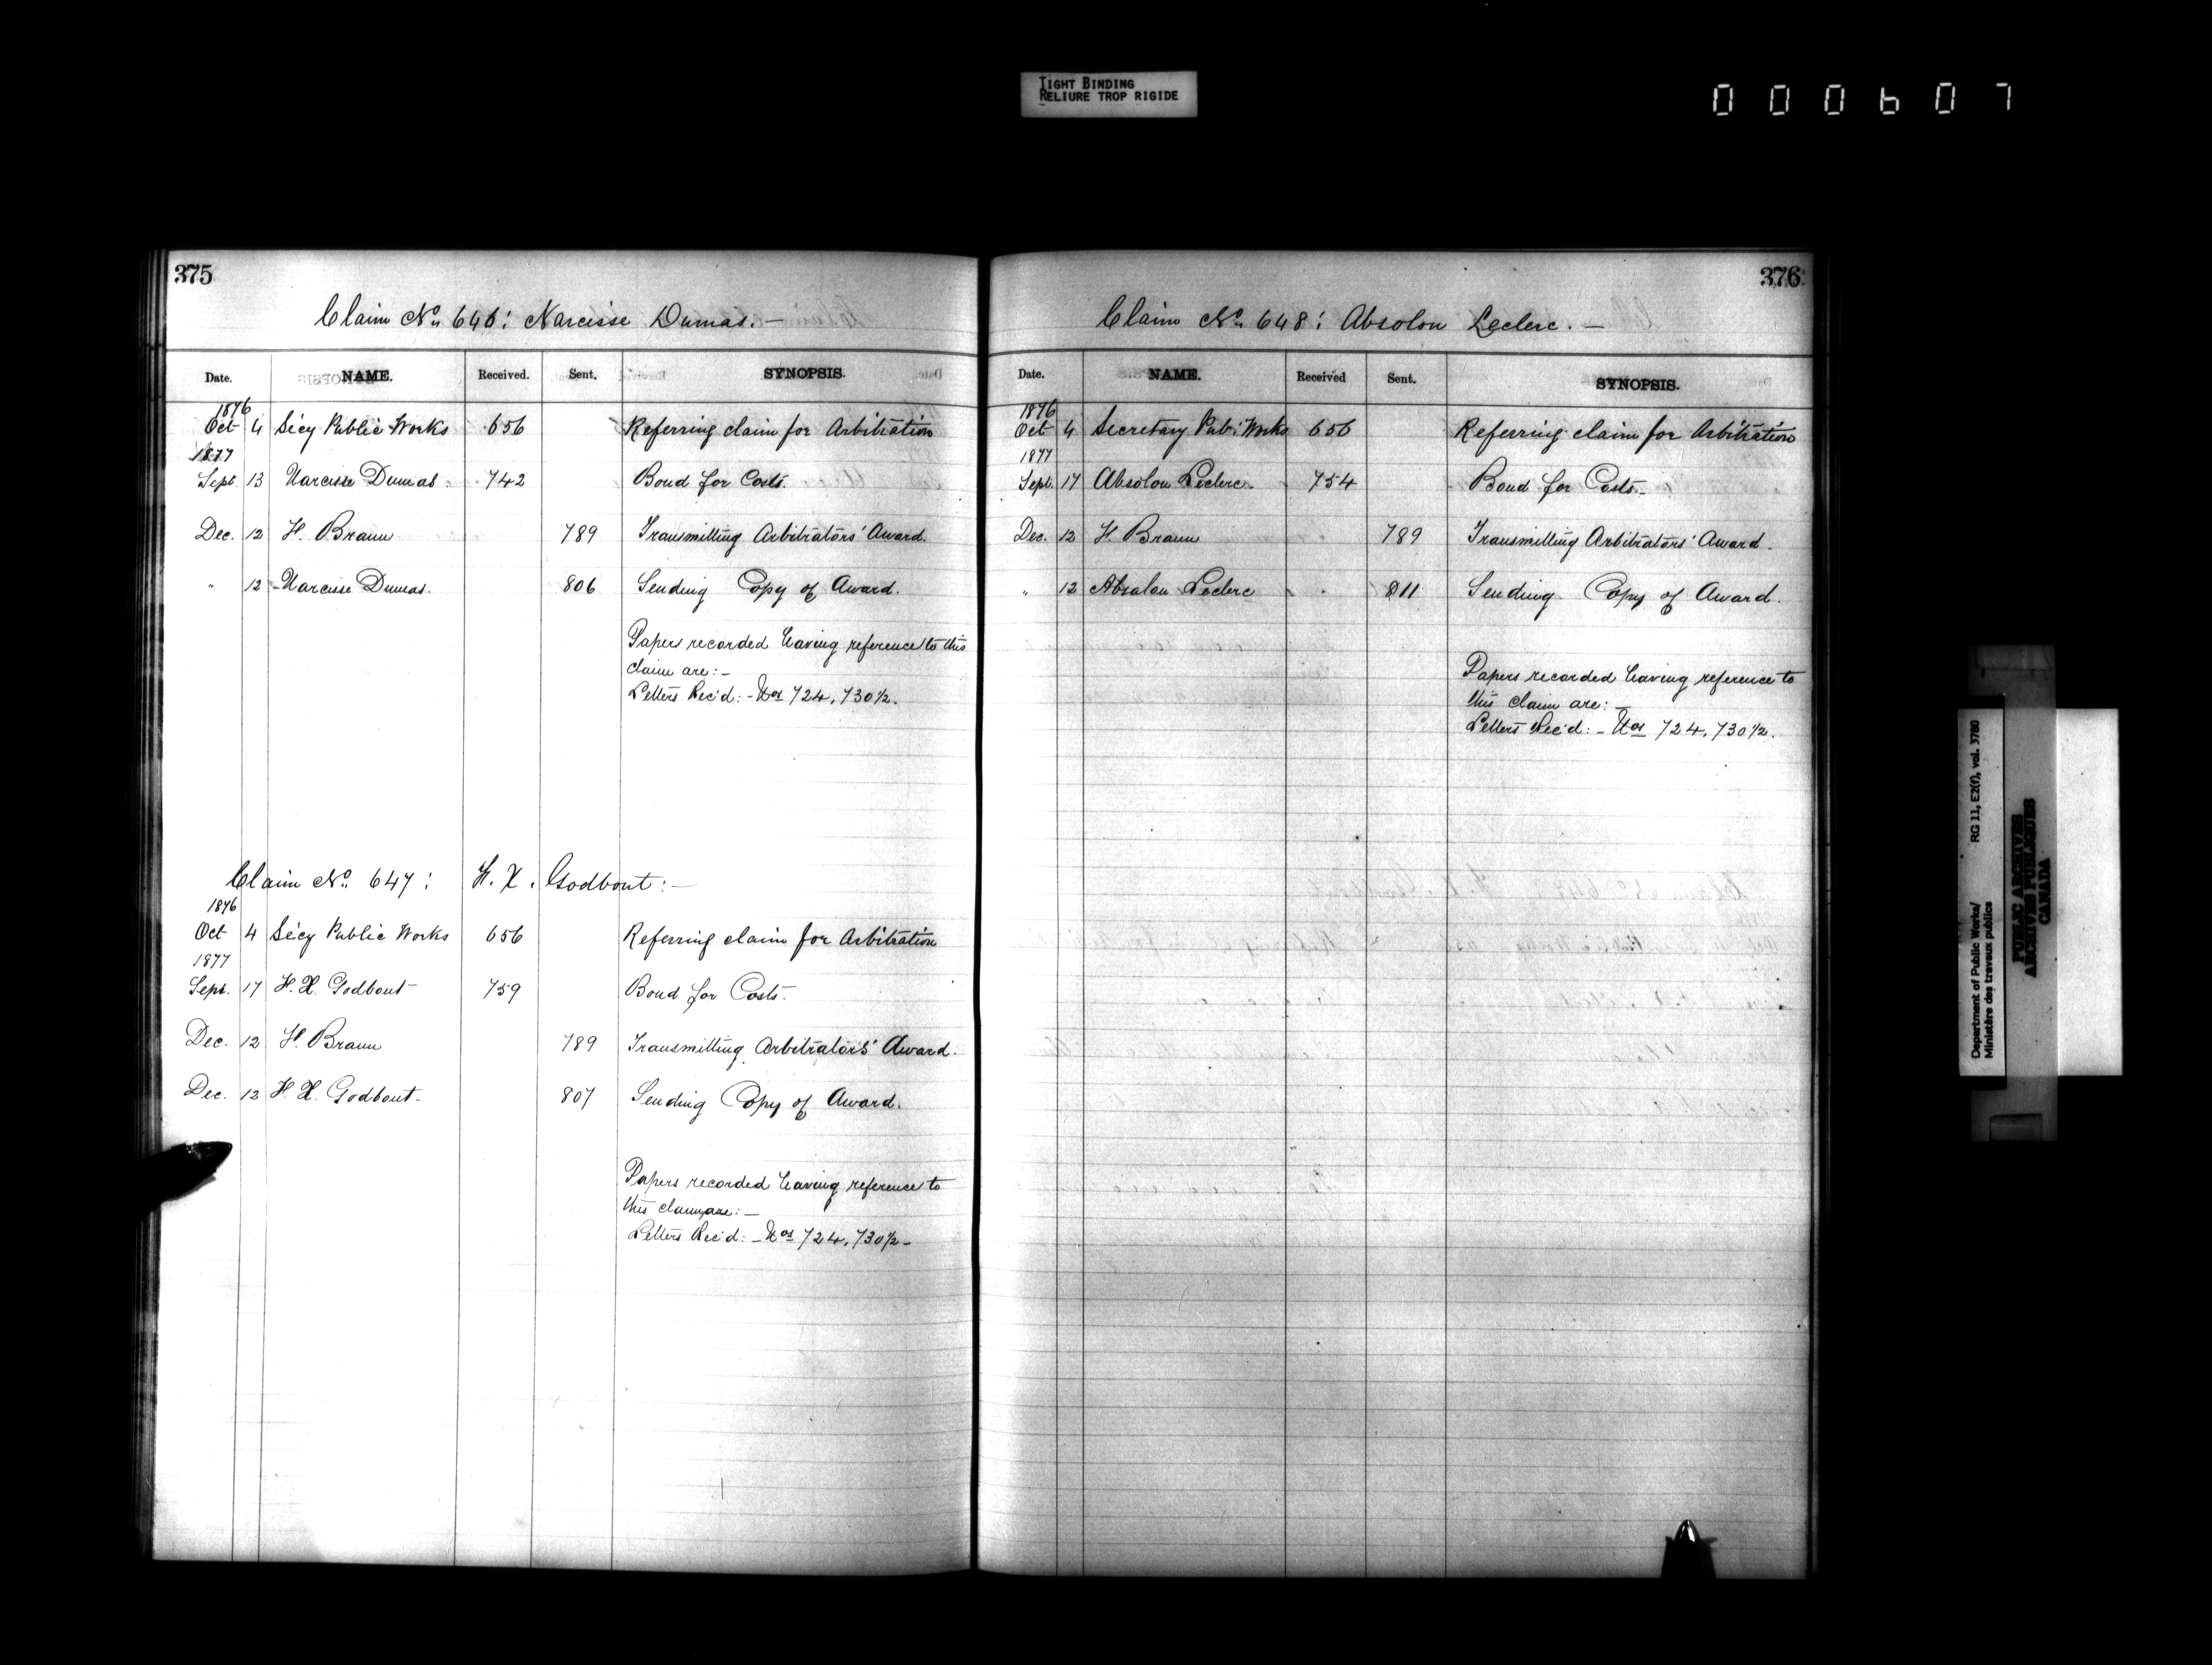 TIGHT BINDING
RELIURE TROP RIGIDE
000607
375
Claim No. 646: Narcisse Dumas. —
Date. NAME. Received. Sent. SYNOPSIS.
1876
Oct 4 Secy Public Works 656 Referring claim for Arbitration
1877
Sept. 13 Narcisse Dumas 742 Bond for Costs.
Dec. 12 F. Braun 789 Transmitting Arbitrators' Award.
" 12 Narcisse Dumas. 806 Sending Copy of Award.
Papers recorded having reference to this
claim are: —
Letters Rec'd: - Nos 724, 730½.
Claim No. 647: F. X. Godbout: —
1876
Oct 4 Secy Public Works 656 Referring claim for Arbitration
1877
Sept. 17 F. X. Godbout 759 Bond for Costs.
Dec. 12 F. Braun 789 Transmitting Arbitrators' Award.
Dec. 12 F. X. Godbout - 807 Sending Copy of Award.
Papers recorded having reference to
this claim are: —
Letters Rec'd: — Nos 724, 730½ -
376
Claim No. 648: Absolon Leclerc. —
Date. NAME. Received Sent. SYNOPSIS.
1876
Oct 4 Secretary Pub: Works 656 Referring claim for Arbitration
1877
Sept. 17 Absolon Leclerc 754 Bond for Costs. -
Dec. 12 F. Braun 789 Transmitting Arbitrators' Award.
" 12 Absalon Leclerc 811 Sending Copy of Award.
Papers recorded having reference to
this claim are: —
Letters Rec'd: - Nos 724, 730½.
Department of Public Works/ RG 11, E2(f), vol. 3780
Ministère des travaux publics
PUBLIC ARCHIVES
ARCHIVES PUBLIQUES
CANADA